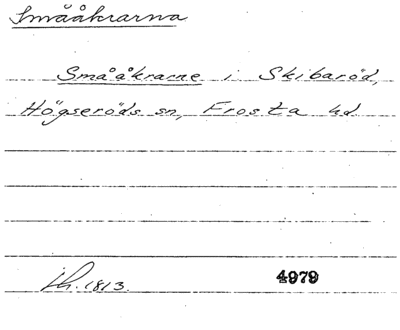 Smååkrarna
Smååkrarne i Skibaröd,
Högseröds sn, Frosta hd
1813. 4979